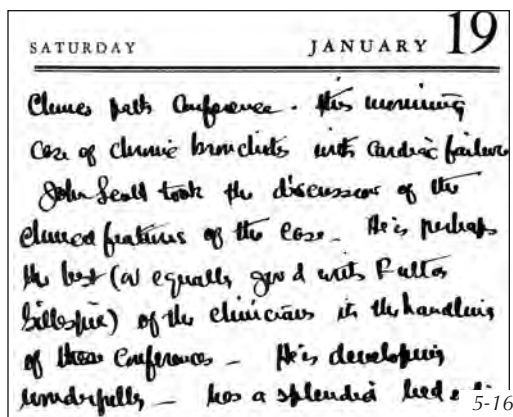 SATURDAY JANUARY 19
Clinico path Conference. this morning
Case of chronic bronchitis with cardiac failure
John Scott took the discussion of the
clinical features of the case - He is perhaps
the best (or equally good with Fulton
Gillespie) of the clinicians in the handling
of these conferences - He is developing
wonderfully - has a splendid
5-16